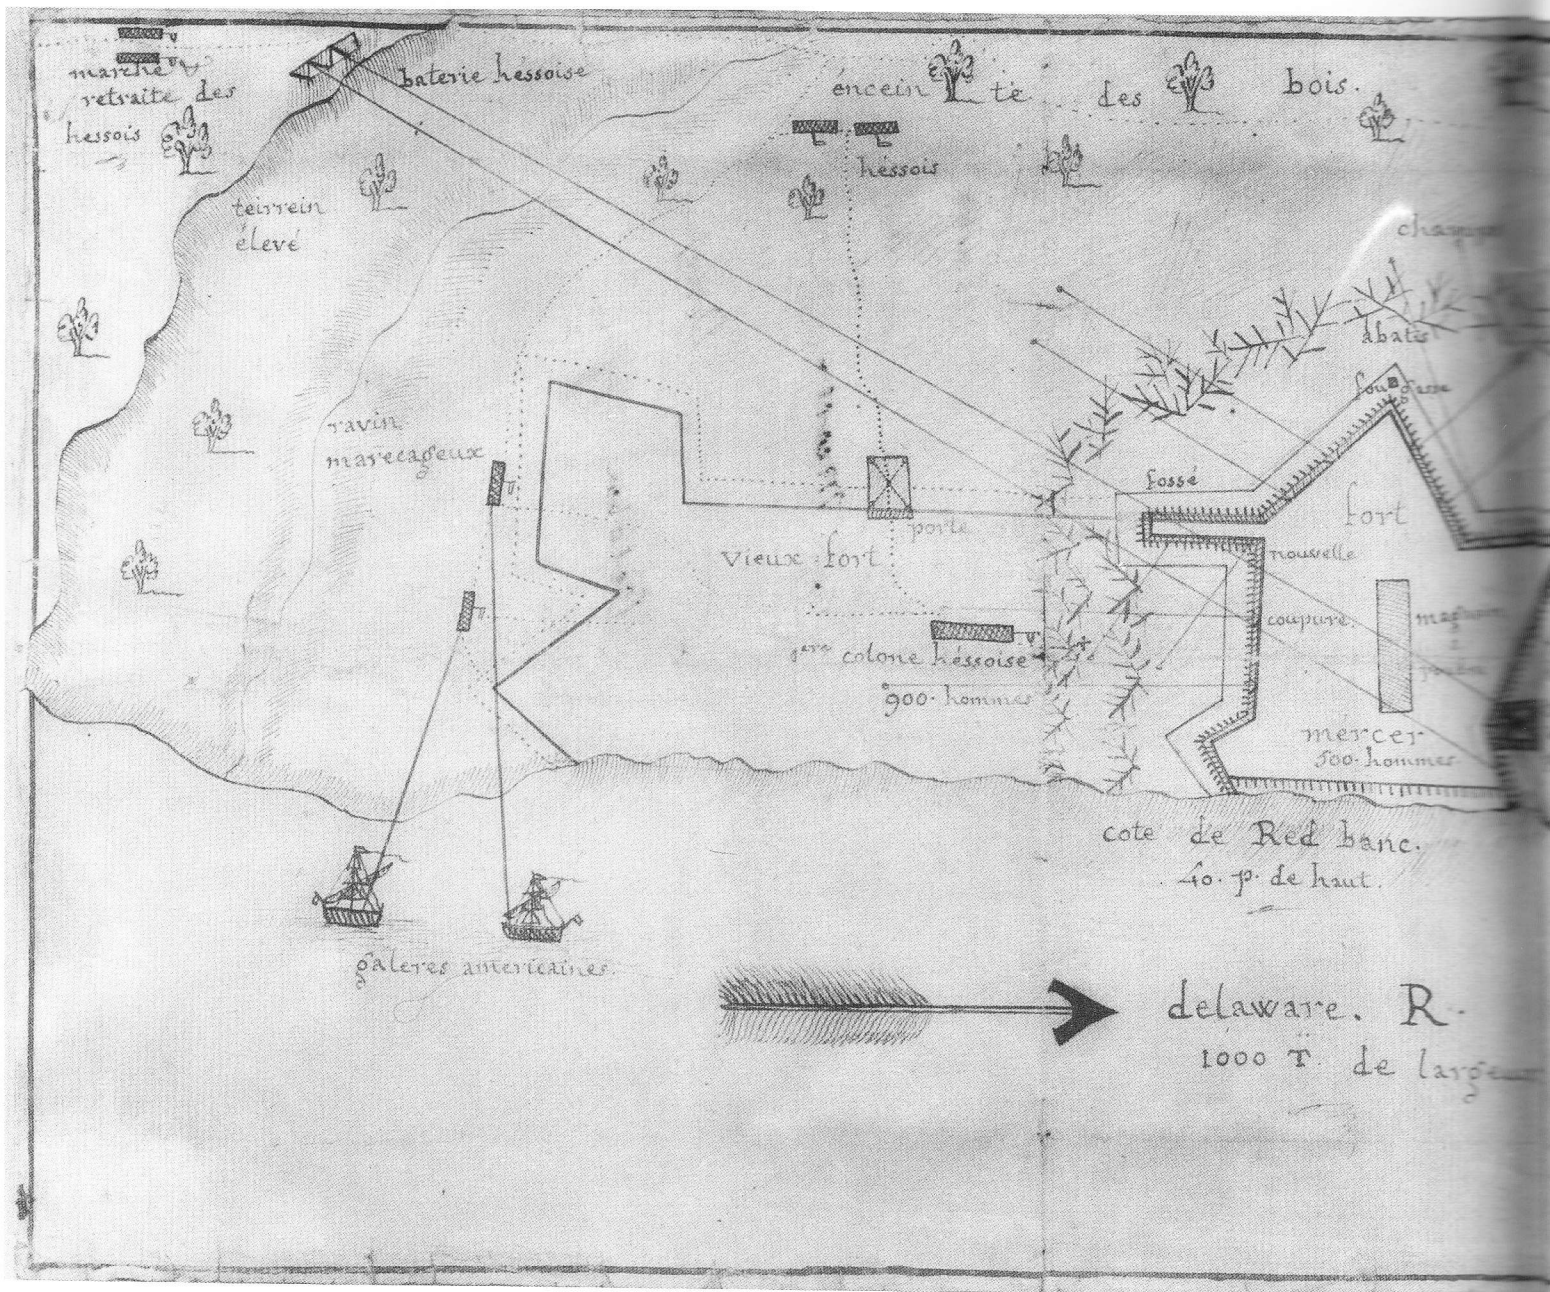 marche
retraite des
hessois
baterie héssoise
encein te des bois.
héssois
teirrein
élevé
abatis
fougasse
ravin
marecageux
fossé
fort
porte
vieux fort
nouvelle
coupure
1ere colone héssoise
900. hommes
mércer
500. hommes
cote de Red banc.
40. p. de haut.
galeres americaines.
delaware. R.
1000 T. de largeur